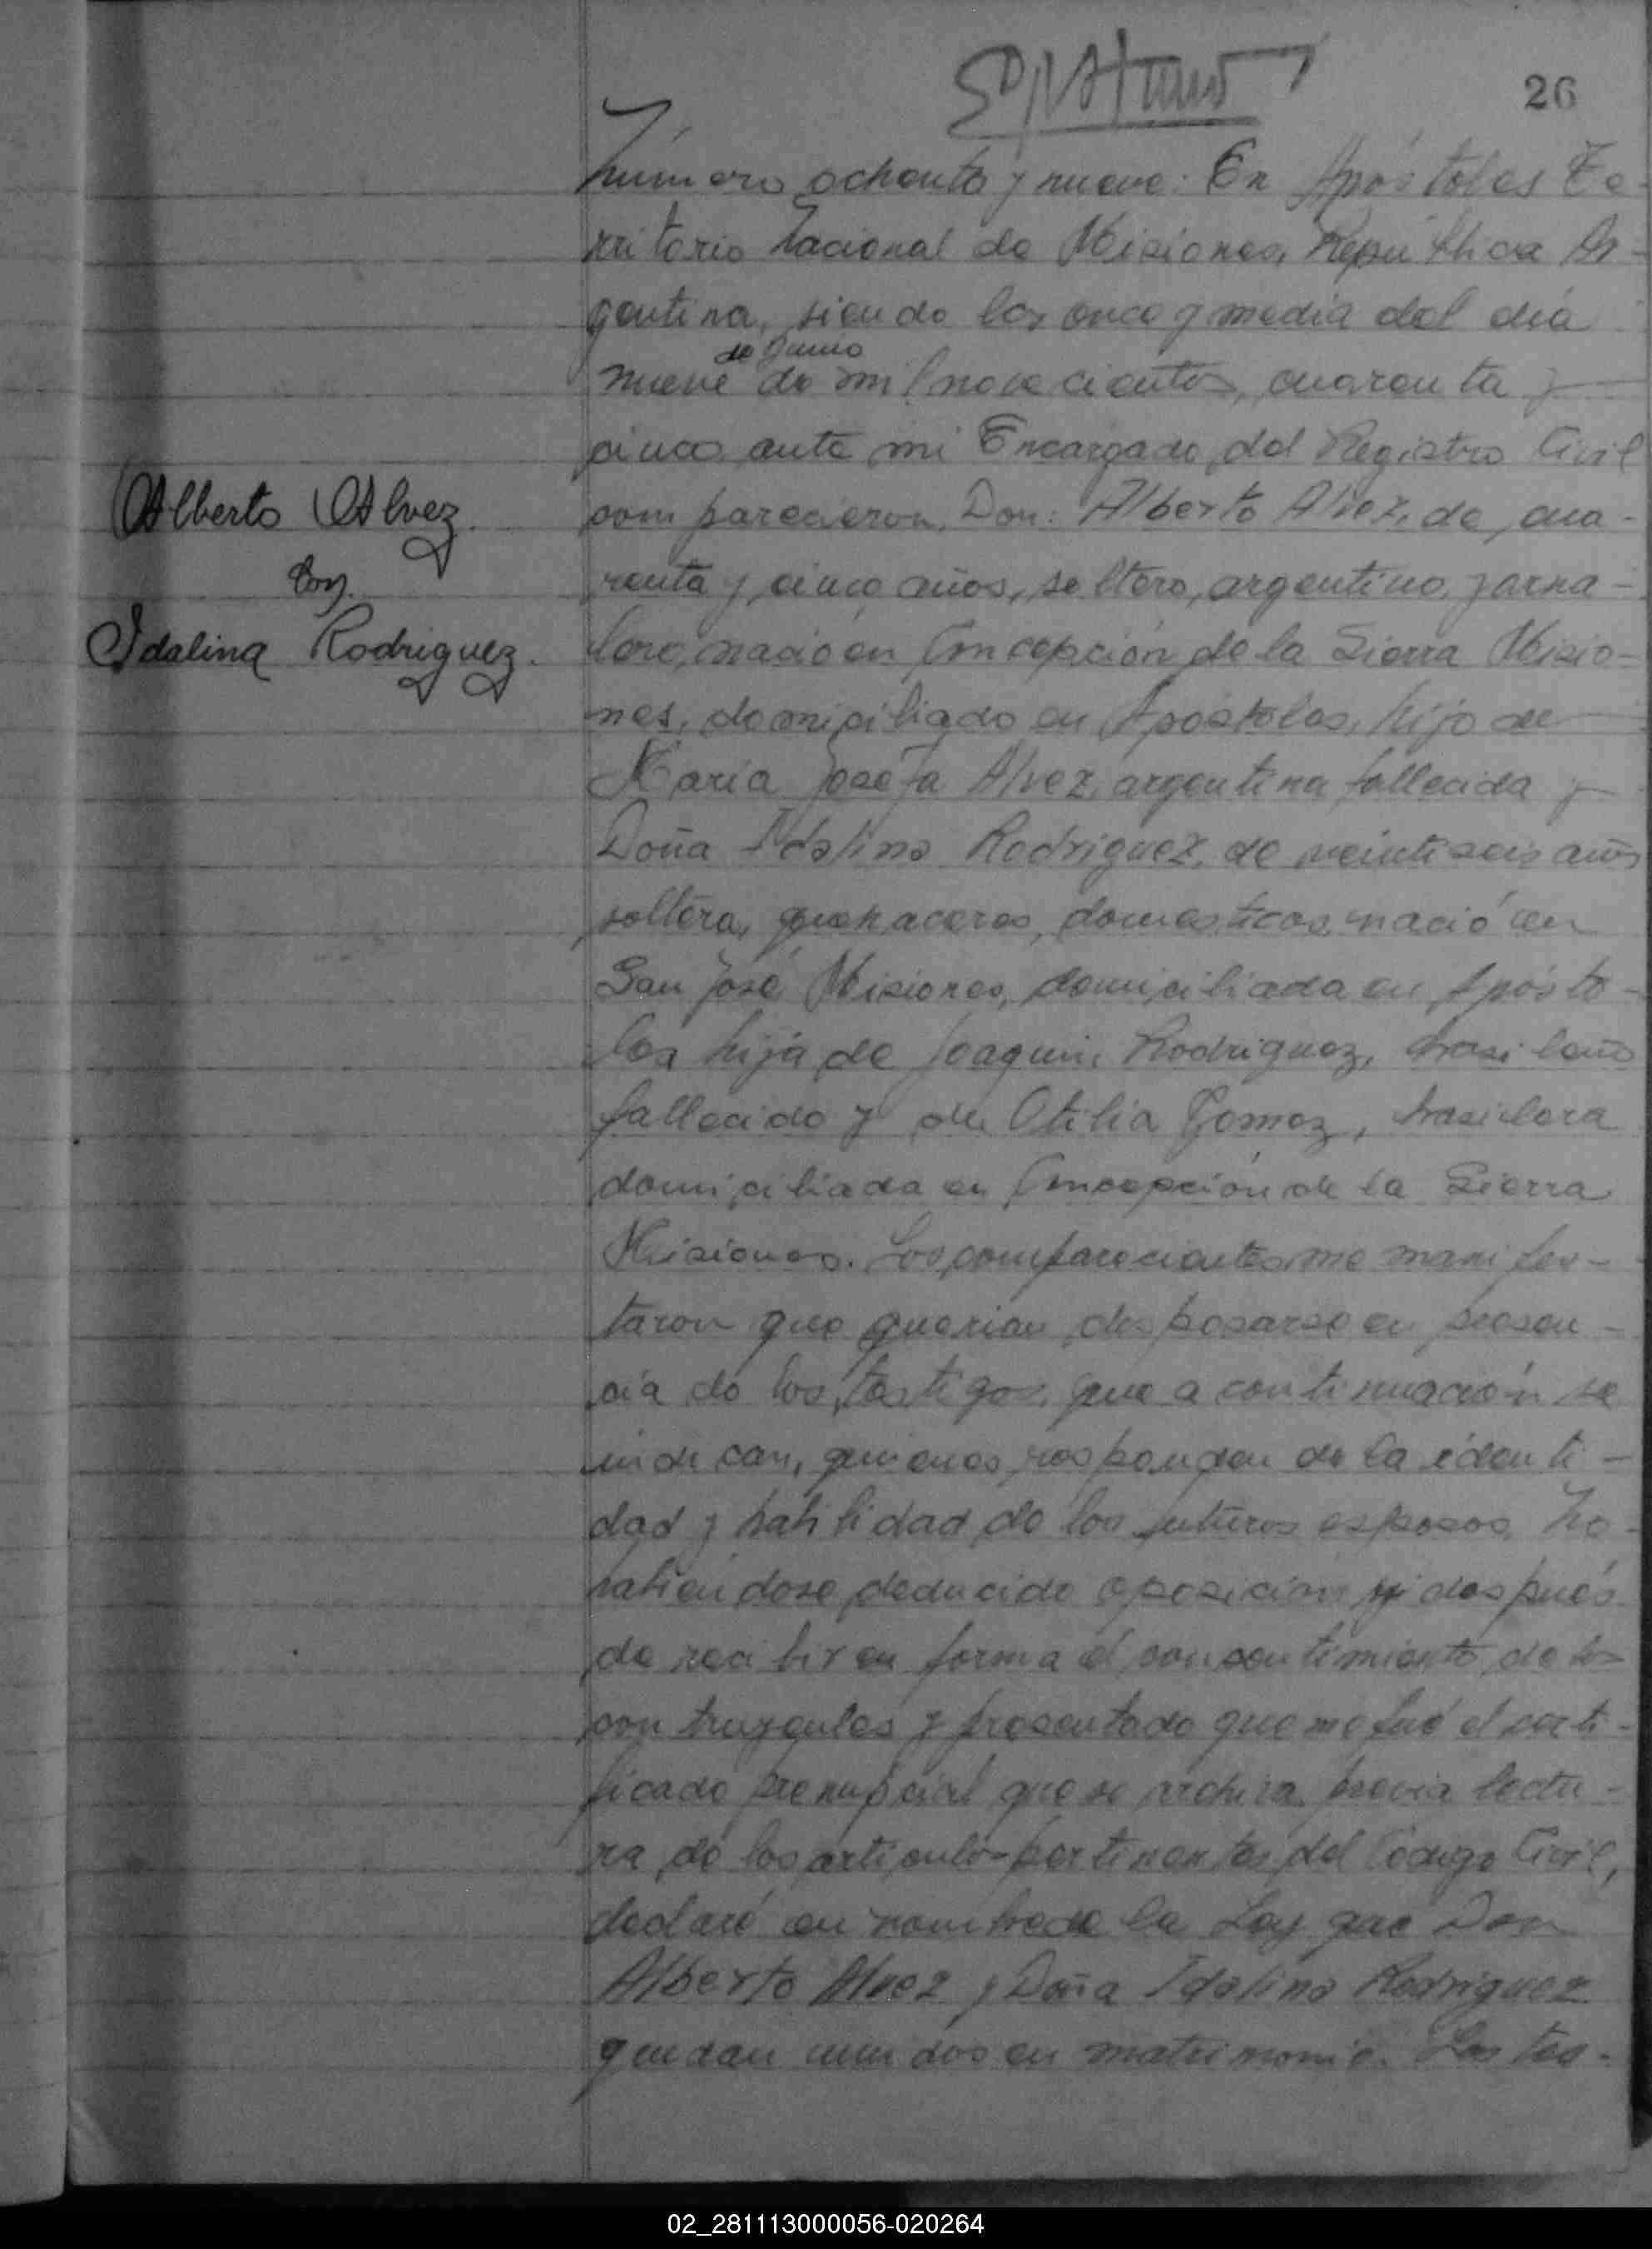 26
Número ochenta y nueve: En Apóstoles Te-
rritorio Nacional de Misiones, República Ar-
gentina, siendo las once y media del día
de Junio
nueve de mil novecientos, cuarenta y
cinco ante mi Encargado del Registro Civil
Alberto Alvez.
comparecieron, Don: Alberto Alvez, de cua-
Con
renta y cinco años, soltero, argentino, jorna-
Idalina Rodriguez.
lero, nació en Concepción de la Sierra Misio-
nes, domiciliado en Apóstoles, hijo de
María Josefa Alvez, argentina fallecida y
Doña Idalina Rodriguez, de veintiseis años
soltera, quehaceres, domesticos, nació en
San José Misiones, domiciliada en Apósto-
les hija de Joaquin Rodriguez, brasileño
fallecido y de Otilia Gomez, brasilera
domiciliada en Concepción de la Sierra
Misiones. Los comparecientes me manifes-
taron que querian desposarse en presen-
cia de los testigos, que a continuación se
indican, quienes responden de la identi-
dad y habilidad de los futuros esposos, No
habiendose deducido oposición y despues
de recibir en forma el consentimiento de los
contrayentes y presentado que me fué el certi-
ficado prenupcial que se archiva previa lectu-
ra de los articulos pertinentes del Código Civil,
declaré en nombre de la Ley que Don
Alberto Alvez y Doña Idalina Rodriguez
quedan unidos en matrimonio. Los tes-
02_281113000056-020264